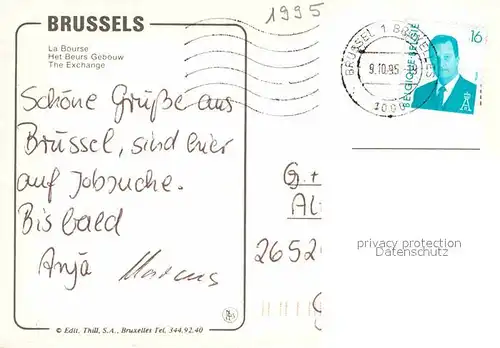 BRUSSELS
1995
La Bourse
Het Beurs Gebouw
The Exchange
Schöne Grüße aus
Brüssel, sind hier
auf Jobsuche.
Bis bald
Anja Markus
BRUSSEL 1
9.10.95
1000
BELGIQUE-BELGIE
16
G. +
Al
2652
privacy protection
Datenschutz
© Edit. Thill, S.A., Bruxelles Tel. 344.92.40